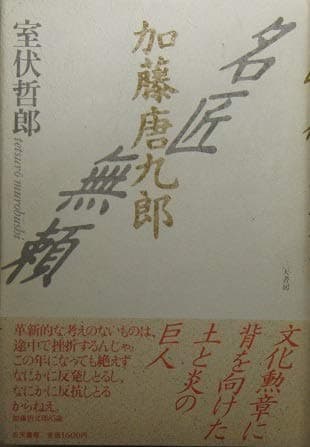 名匠
無頼
加藤唐九郎
室伏哲郎
tetsurō murobushi
文化勲章に
背を向けた
土と炎の
巨人
革新的な考えのないものは、
途中で挫折するんじゃ。
この年になっても絶えず
なにかに反発しとるし、
なにかに反抗しとる
からねえ。
定価1600円